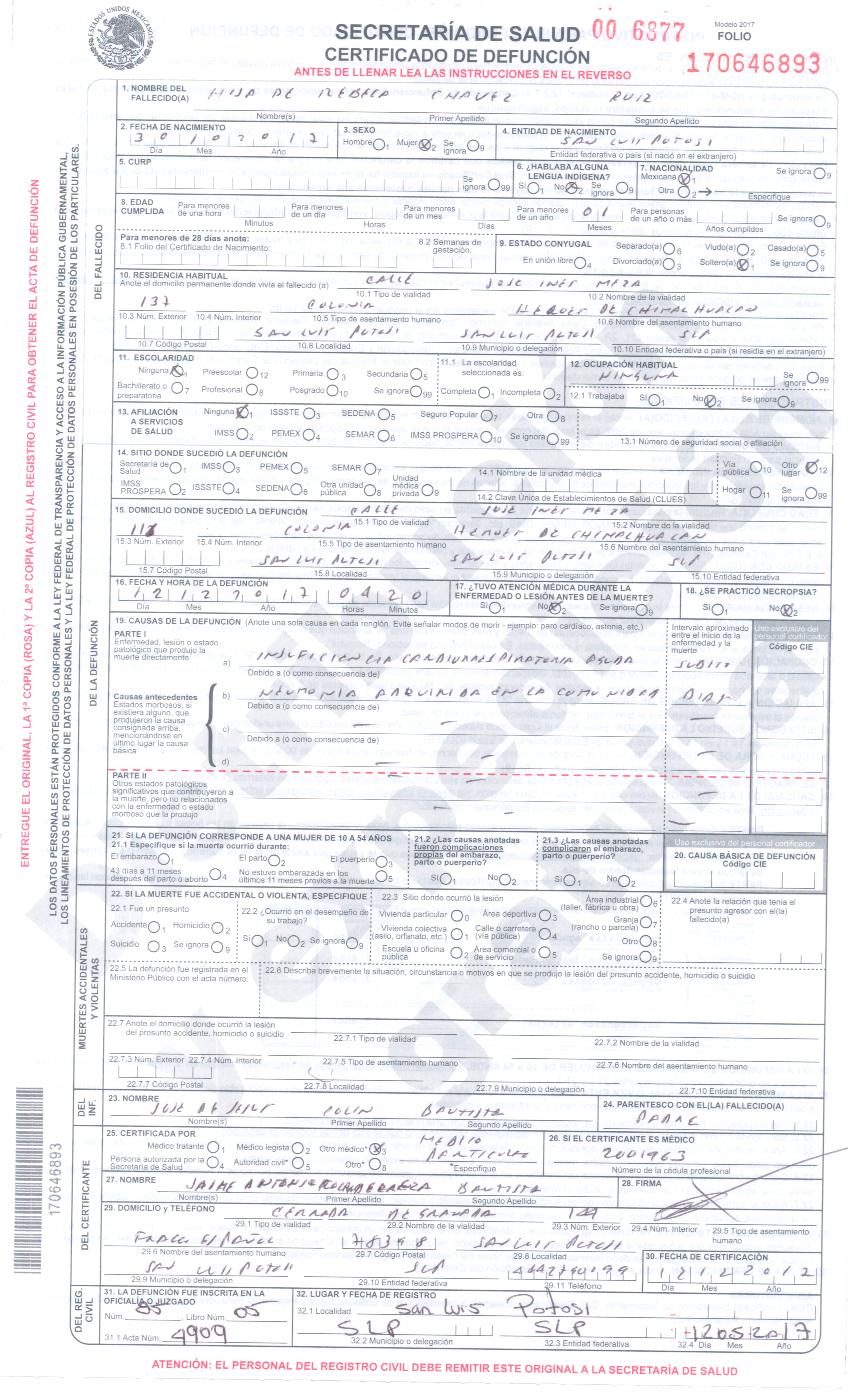 ESTADOS UNIDOS MEXICANOS
SECRETARÍA DE SALUD 00 6877
Modelo 2017
CERTIFICADO DE DEFUNCIÓN FOLIO
ANTES DE LLENAR LEA LAS INSTRUCCIONES EN EL REVERSO 170646893
1. NOMBRE DEL FALLECIDO(A) HIJA DE REBECA CHAVEZ RUIZ
Nombre(s) Primer Apellido Segundo Apellido
2. FECHA DE NACIMIENTO 30 10 2017 Día Mes Año
3. SEXO Hombre 1 Mujer 2 Se ignora 9
4. ENTIDAD DE NACIMIENTO SAN LUIS POTOSI
Entidad federativa o país (si nació en el extranjero)
5. CURP Se ignora 99
6. ¿HABLABA ALGUNA LENGUA INDÍGENA? Sí 1 No 2 Se ignora 9
7. NACIONALIDAD Mexicana 1 Otra 2 Especifique Se ignora 9
8. EDAD CUMPLIDA Para menores de una hora Minutos Para menores de un día Horas Para menores de un mes Días Para menores de un año 01 Meses Para personas de un año o más Años cumplidos Se ignora 9
Para menores de 28 días anote:
8.1 Folio del Certificado de Nacimiento: 8.2 Semanas de gestación:
9. ESTADO CONYUGAL En unión libre 4 Separado(a) 6 Divorciado(a) 3 Viudo(a) 2 Soltero(a) 1 Casado(a) 5 Se ignora 9
10. RESIDENCIA HABITUAL
Anote el domicilio permanente donde vivía el fallecido (a) CALLE JOSE INES MEZA
10.1 Tipo de vialidad 10.2 Nombre de la vialidad
137 COLONIA HEROES DE CHIMALHUACAN
10.3 Núm. Exterior 10.4 Núm. Interior 10.5 Tipo de asentamiento humano 10.6 Nombre del asentamiento humano
SAN LUIS POTOSI SAN LUIS POTOSI SLP
10.7 Código Postal 10.8 Localidad 10.9 Municipio o delegación 10.10 Entidad federativa o país (si residía en el extranjero)
11. ESCOLARIDAD
Ninguna 1 Preescolar 12 Primaria 3 Secundaria 5
Bachillerato o preparatoria 7 Profesional 8 Posgrado 10 Se ignora 99
11.1 La escolaridad seleccionada es. Completa 1 Incompleta 2
12. OCUPACIÓN HABITUAL NINGUNA Se ignora 99
12.1 Trabajaba Sí 1 No 2 Se ignora 9
13. AFILIACIÓN A SERVICIOS DE SALUD
Ninguna 1 ISSSTE 3 SEDENA 5 Seguro Popular 7 Otra 8
IMSS 2 PEMEX 4 SEMAR 6 IMSS PROSPERA 10 Se ignora 99
13.1 Número de seguridad social o afiliación
14. SITIO DONDE SUCEDIÓ LA DEFUNCIÓN
Secretaría de Salud 1 IMSS 3 PEMEX 5 SEMAR 7
IMSS PROSPERA 2 ISSSTE 4 SEDENA 6 Otra unidad pública 8 Unidad médica privada 9
14.1 Nombre de la unidad médica
14.2 Clave Única de Establecimientos de Salud (CLUES)
Vía pública 10 Otro lugar 12 Hogar 11 Se ignora 99
15. DOMICILIO DONDE SUCEDIÓ LA DEFUNCIÓN CALLE JOSE INES MEZA
15.1 Tipo de vialidad 15.2 Nombre de la vialidad
COLONIA HEROES DE CHIMALHUACAN
15.3 Núm. Exterior 15.4 Núm. Interior 15.5 Tipo de asentamiento humano 15.6 Nombre del asentamiento humano
SAN LUIS POTOSI SAN LUIS POTOSI SLP
15.7 Código Postal 15.8 Localidad 15.9 Municipio o delegación 15.10 Entidad federativa
16. FECHA Y HORA DE LA DEFUNCIÓN 12 12 2017 04 20 Día Mes Año Horas Minutos
17. ¿TUVO ATENCIÓN MÉDICA DURANTE LA ENFERMEDAD O LESIÓN ANTES DE LA MUERTE? Sí 1 No 2 Se ignora 9
18. ¿SE PRACTICÓ NECROPSIA? Sí 1 No 2
19. CAUSAS DE LA DEFUNCIÓN (Anote una sola causa en cada renglón. Evite señalar modos de morir - ejemplo: paro cardíaco, astenia, etc.)
Intervalo aproximado entre el inicio de la enfermedad y la muerte
Uso exclusivo del personal codificador
Código CIE
PARTE I
Enfermedad, lesión o estado patológico que produjo la muerte directamente
a) INSUFICIENCIA CARDIORRESPIRATORIA AGUDA SUBITO
Debido a (o como consecuencia de)
Causas antecedentes
Estados morbosos, si existiera alguno, que produjeron la causa consignada arriba, mencionándose en último lugar la causa básica
b) NEUMONIA ADQUIRIDA EN LA COMUNIDAD DIAS
Debido a (o como consecuencia de)
c) — — —
Debido a (o como consecuencia de)
d) — — —
PARTE II
Otros estados patológicos significativos que contribuyeron a la muerte, pero no relacionados con la enfermedad o estado morboso que la produjo
21. SI LA DEFUNCIÓN CORRESPONDE A UNA MUJER DE 10 A 54 AÑOS
21.1 Especifique si la muerte ocurrió durante:
El embarazo 1 El parto 2 El puerperio 3
43 días a 11 meses después del parto o aborto 4 No estuvo embarazada en los últimos 11 meses previos a la muerte 5
21.2 ¿Las causas anotadas fueron complicaciones propias del embarazo, parto o puerperio? Sí 1 No 2
21.3 ¿Las causas anotadas complicaron el embarazo, parto o puerperio? Sí 1 No 2
Uso exclusivo del personal codificador
20. CAUSA BÁSICA DE DEFUNCIÓN
Código CIE
22. SI LA MUERTE FUE ACCIDENTAL O VIOLENTA, ESPECIFIQUE
22.1 Fue un presunto Accidente 1 Homicidio 2 Suicidio 3 Se ignora 9
22.2 ¿Ocurrió en el desempeño de su trabajo? Sí 1 No 2 Se ignora 9
22.3 Sitio donde ocurrió la lesión
Vivienda particular 0 Área deportiva 3 Área industrial (taller, fábrica u obra) 6
Vivienda colectiva (asilo, orfanato, etc.) 1 Calle o carretera (vía pública) 4 Granja (rancho o parcela) 7
Escuela u oficina pública 2 Área comercial o de servicio 5 Otro 8 Se ignora 9
22.4 Anote la relación que tenía el presunto agresor con el(la) fallecido(a)
22.5 La defunción fue registrada en el Ministerio Público con el acta número:
22.6 Describa brevemente la situación, circunstancia o motivos en que se produjo la lesión del presunto accidente, homicidio o suicidio
22.7 Anote el domicilio donde ocurrió la lesión del presunto accidente, homicidio o suicidio
22.7.1 Tipo de vialidad 22.7.2 Nombre de la vialidad
22.7.3 Núm. Exterior 22.7.4 Núm. Interior 22.7.5 Tipo de asentamiento humano 22.7.6 Nombre del asentamiento humano
22.7.7 Código Postal 22.7.8 Localidad 22.7.9 Municipio o delegación 22.7.10 Entidad federativa
23. NOMBRE JOSE DE JESUS POLIN BAUTISTA
Nombre(s) Primer Apellido Segundo Apellido
24. PARENTESCO CON EL(LA) FALLECIDO(A) PADRE
25. CERTIFICADA POR
Médico tratante 1 Médico legista 2 Otro médico* 3 MEDICO PARTICULAR
Persona autorizada por la Secretaría de Salud 4 Autoridad civil* 5 Otro* 8 *Especifique
26. SI EL CERTIFICANTE ES MÉDICO
2001963
Número de la cédula profesional
27. NOMBRE JAIME ANTONIO BAUTISTA
Nombre(s) Primer Apellido Segundo Apellido
28. FIRMA
29. DOMICILIO y TELÉFONO CERRADA DE GRANADA
29.1 Tipo de vialidad 29.2 Nombre de la vialidad 29.3 Núm. Exterior 29.4 Núm. Interior 29.5 Tipo de asentamiento humano
SAN LUIS POTOSI
29.6 Nombre del asentamiento humano 29.7 Código Postal 29.8 Localidad
SAN LUIS POTOSI SLP
29.9 Municipio o delegación 29.10 Entidad federativa 29.11 Teléfono
30. FECHA DE CERTIFICACIÓN 12 12 2017 Día Mes Año
31. LA DEFUNCIÓN FUE INSCRITA EN LA OFICIALÍA O JUZGADO
Núm. 05 Libro Núm. 05
31.1 Acta Núm. 4909
32. LUGAR Y FECHA DE REGISTRO
32.1 Localidad San Luis Potosí
SLP SLP
32.2 Municipio o delegación 32.3 Entidad federativa 32.4 Día Mes Año
ATENCIÓN: EL PERSONAL DEL REGISTRO CIVIL DEBE REMITIR ESTE ORIGINAL A LA SECRETARÍA DE SALUD
ENTREGUE EL ORIGINAL, LA 1ª COPIA (ROSA) Y LA 2ª COPIA (AZUL) AL REGISTRO CIVIL PARA OBTENER EL ACTA DE DEFUNCIÓN
LOS DATOS PERSONALES ESTÁN PROTEGIDOS CONFORME A LA LEY FEDERAL DE TRANSPARENCIA Y ACCESO A LA INFORMACIÓN PÚBLICA GUBERNAMENTAL,
LOS LINEAMIENTOS DE PROTECCIÓN DE DATOS PERSONALES Y LA LEY FEDERAL DE PROTECCIÓN DE DATOS PERSONALES EN POSESIÓN DE LOS PARTICULARES.
DEL FALLECIDO
DE LA DEFUNCIÓN
MUERTES ACCIDENTALES Y VIOLENTAS
DEL INF.
DEL CERTIFICANTE
DEL REG. CIVIL
170646893
Distribución y expedición gratuita